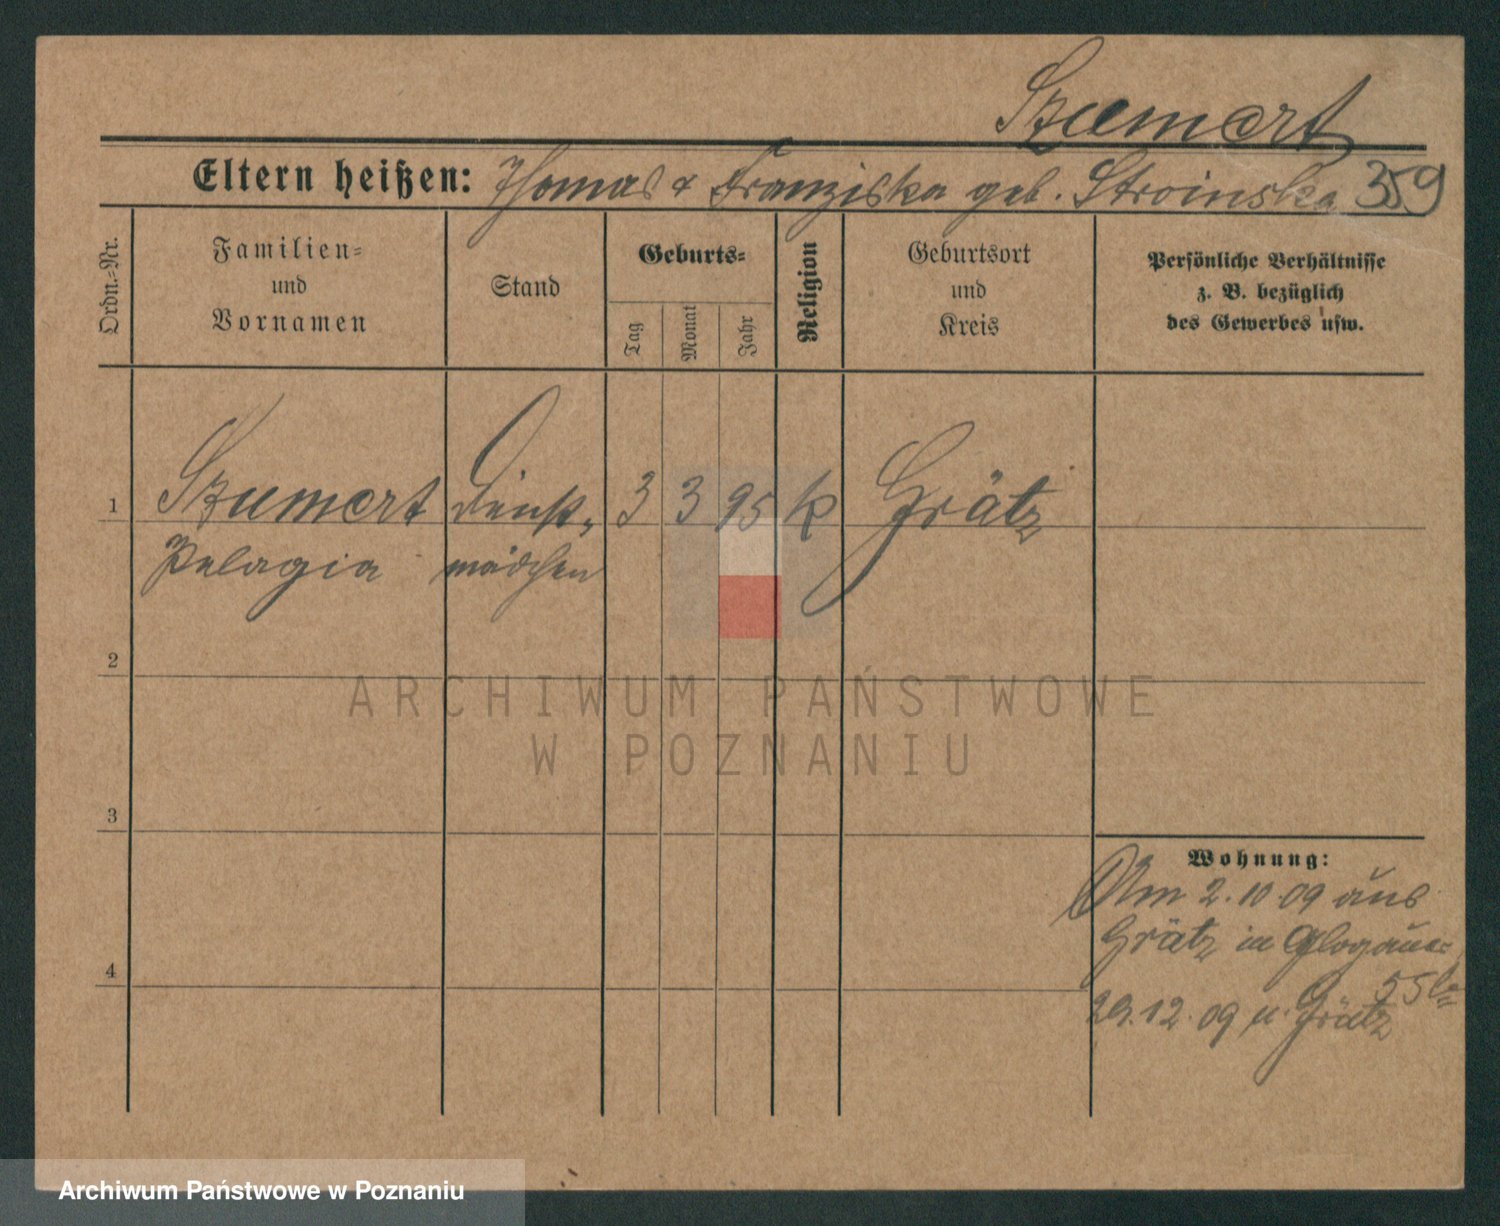 Szumert
Eltern heißen: Thomas & Franziska geb. Stroinska 359
Ordn.-Nr.
Familien-
und
Vornamen
Stand
Geburts-
Tag
Monat
Jahr
Religion
Geburtsort
und
Kreis
Persönliche Verhältnisse
z. B. bezüglich
des Gewerbes usw.
1 Szumert Dienst- 3 3 95 k Grätz
Pelagia mädchen
2
3
4
Wohnung:
Am 2.10.09 aus
Grätz in Glogauer-
55
29.12.09 n. Grätz
ARCHIWUM PAŃSTWOWE
W POZNANIU
Archiwum Państwowe w Poznaniu